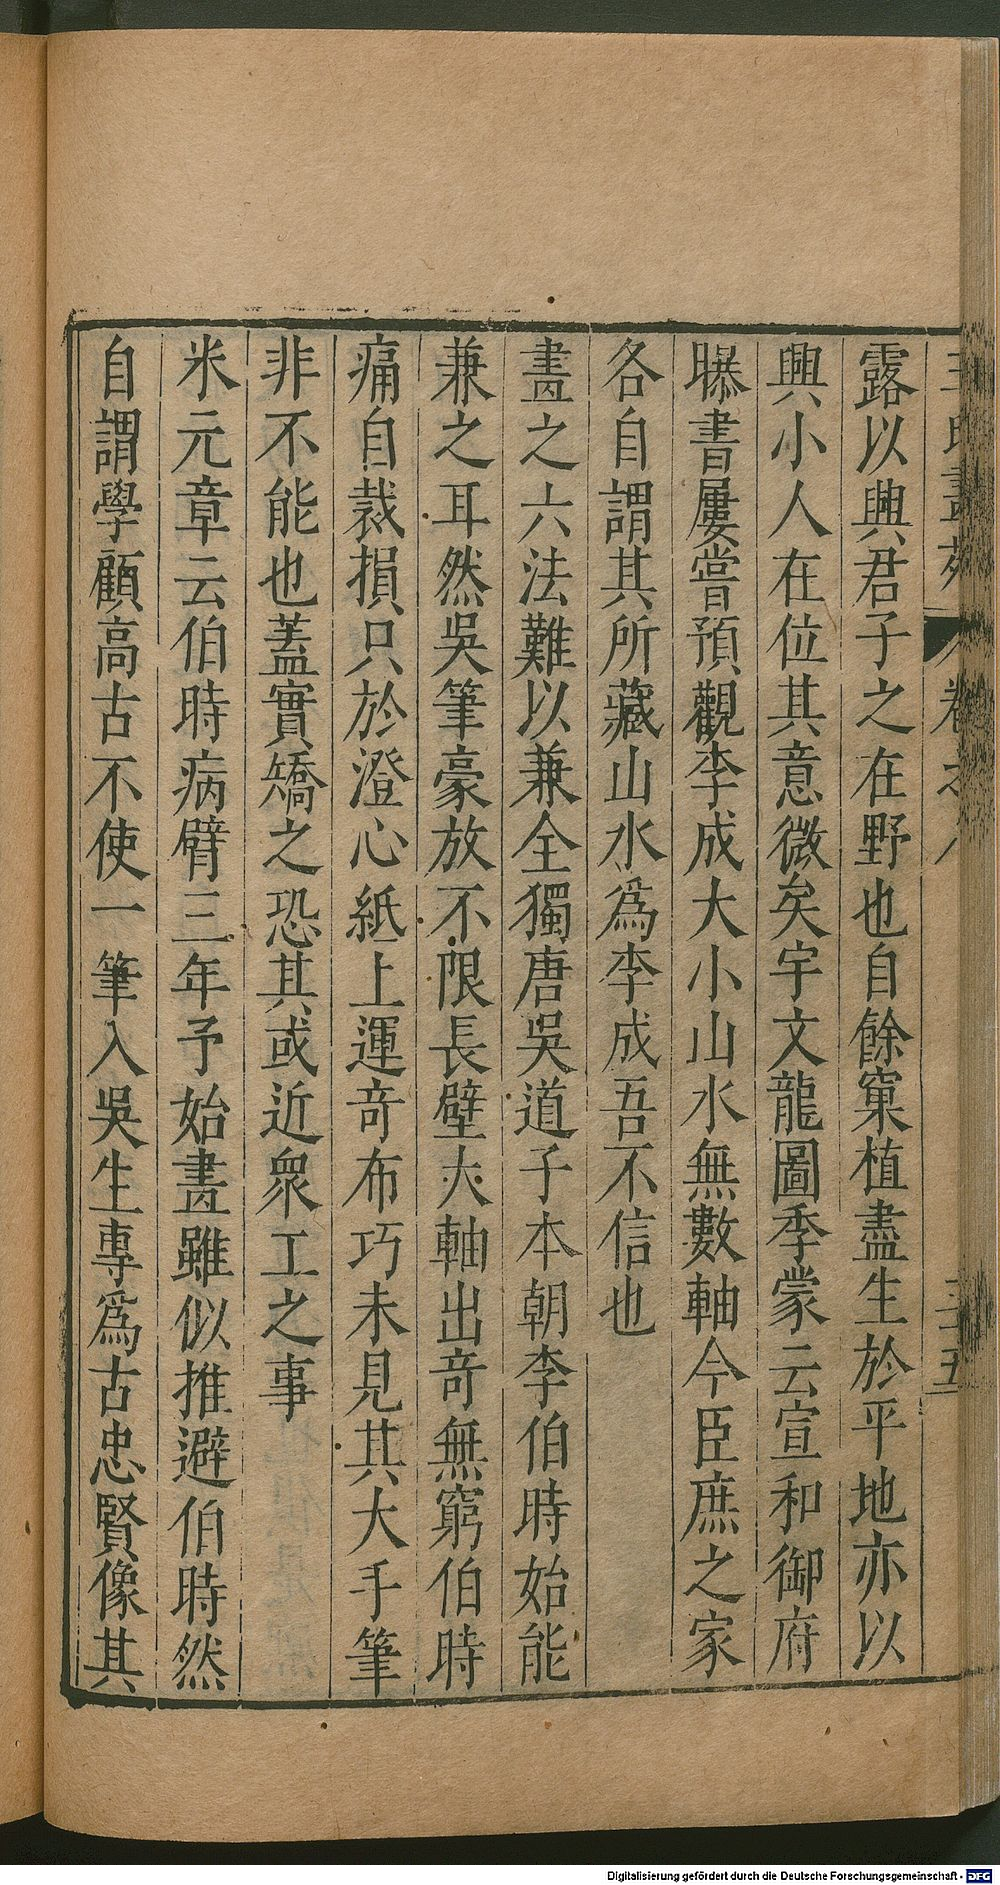 露以興君子之在野也自餘窠植盡生於平地亦以
興小人在位其意微矣宇文龍圖季蒙云宣和御府
曝書屢嘗預觀李成大小山水無數軸今臣庶之家
各自謂其所藏山水爲李成吾不信也
畫之六法難以兼全獨唐吳道子本朝李伯時始能
兼之耳然吳筆豪放不限長壁大軸出奇無窮伯時
痛自裁損只於澄心紙上運奇布巧未見其大手筆
非不能也蓋實矯之恐其或近衆工之事
米元章云伯時病臂三年予始畫雖似推避伯時然
自謂學顧高古不使一筆入吳生專爲古忠賢像其
卷之八
Digitalisierung gefördert durch die Deutsche Forschungsgemeinschaft - DFG